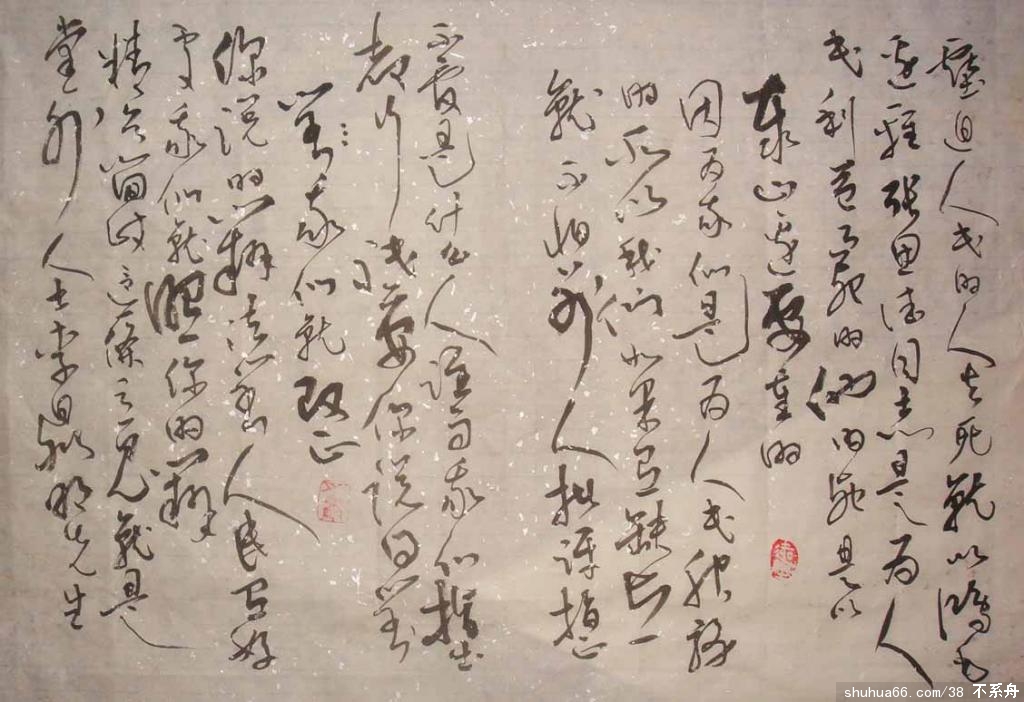 壓迫人民的人去死就比鸿毛
还輕張思德同志是为人
民利益而死的他的死是比
泰山还要重的
因为我们是为人民服務
的所以我们如果有缺点
就不怕别人批评指正
不管是什么人谁向我们指出
都行只要你说的对
对我们就改正
你说的办法对人民有好
处我们就照你的办
精兵简政这一條意见就是
党外人士李鼎铭先生
shuhua66.com/38 不系舟